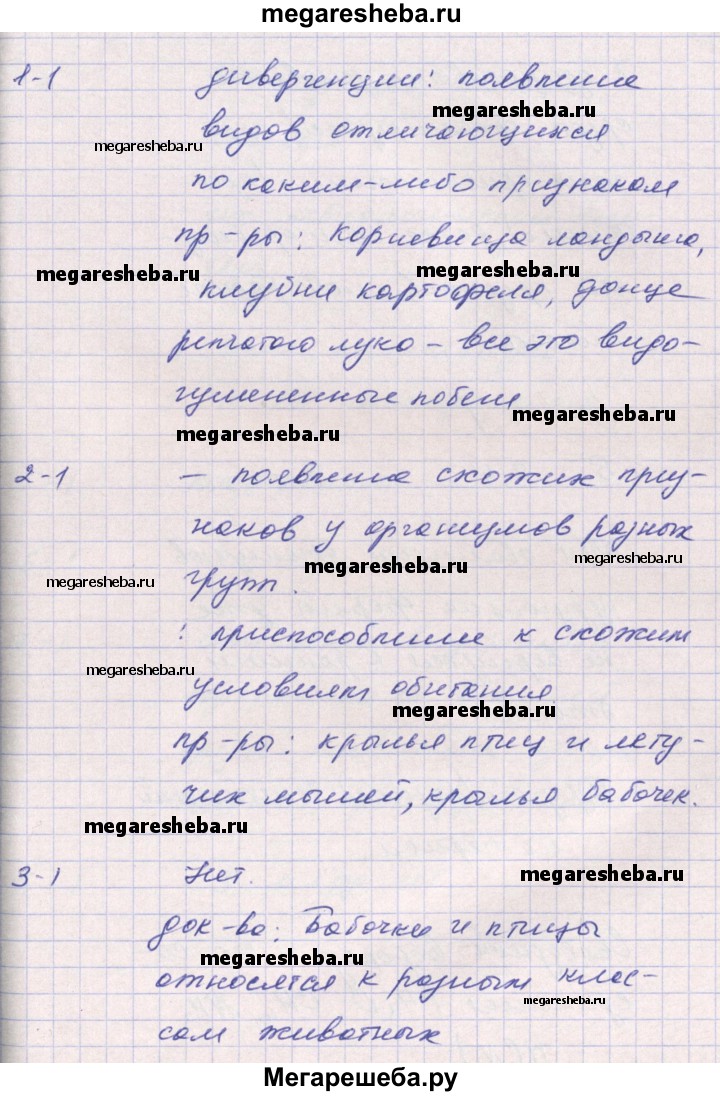 megaresheba.ru
1-1 дивергенции: появление
megaresheba.ru
видов отличающихся
megaresheba.ru
по каким-либо признакам
пр-ры: корневища ландыша,
megaresheba.ru megaresheba.ru
клубни картофеля, донце
репчатого лука – все это видо-
изменённые побеги
megaresheba.ru
megaresheba.ru
2-1 – появление схожих приз-
наков у организмов разных
megaresheba.ru
megaresheba.ru
megaresheba.ru
групп.
: приспособление к схожим
megaresheba.ru
условиям обитания
megaresheba.ru
пр-ры: крылья птиц и лету-
чих мышей, крылья бабочек.
megaresheba.ru
3-1 Нет.
megaresheba.ru
док-во: Бабочки и птицы
megaresheba.ru
относятся к разным клас-
megaresheba.ru
сам животных
Мегарешеба.ру